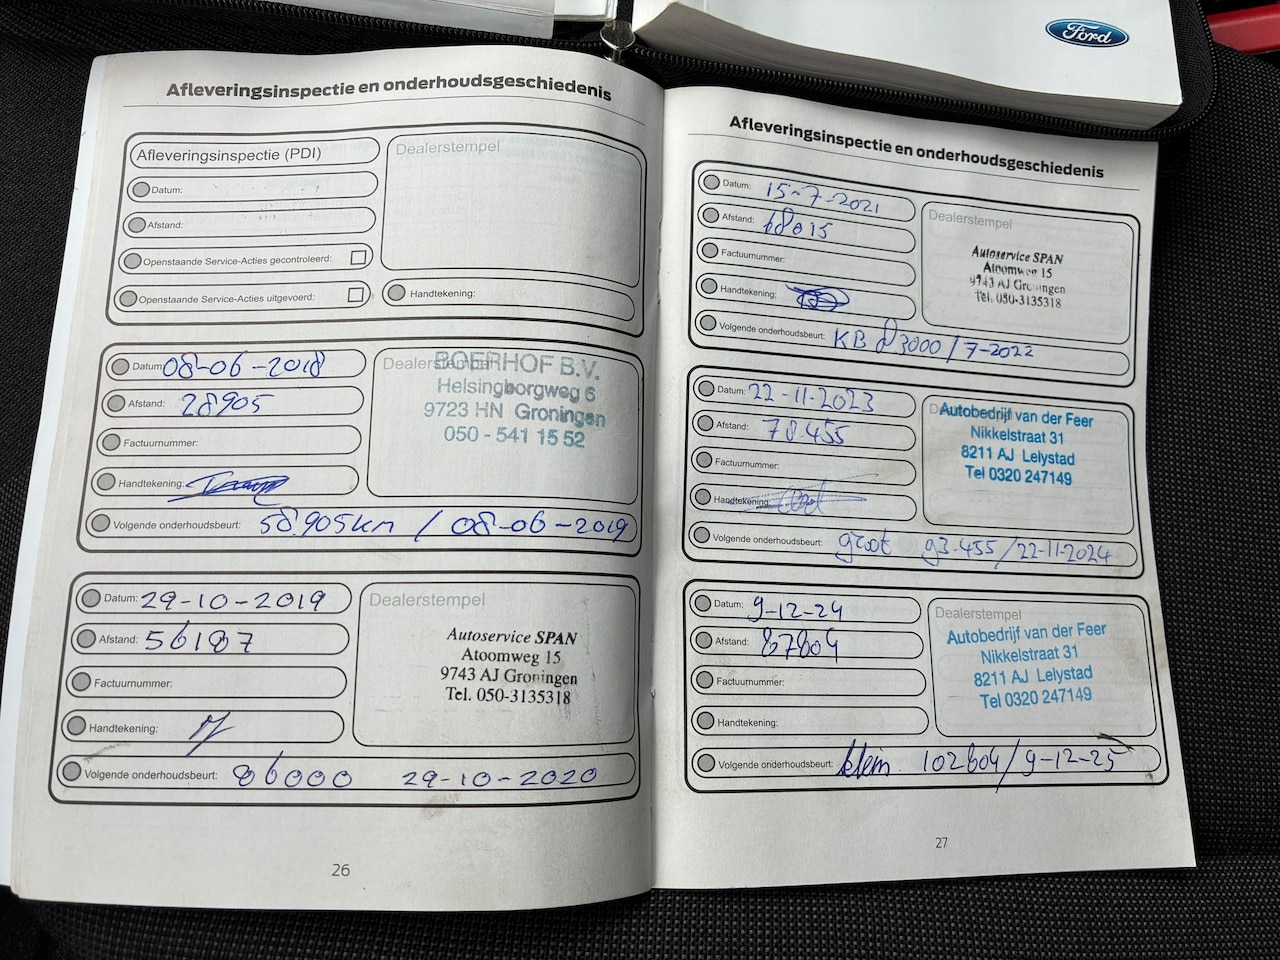 Ford
Afleveringsinspectie en onderhoudsgeschiedenis
Afleveringsinspectie (PDI)
Dealerstempel
Datum:
Afstand:
Openstaande Service-Acties gecontroleerd:
Openstaande Service-Acties uitgevoerd:
Handtekening:
Datum: 08-06-2018
Dealerstempel
BOERHOF B.V.
Helsingborgweg 6
9723 HN Groningen
050 - 541 15 52
Afstand: 28905
Factuurnummer:
Handtekening:
Volgende onderhoudsbeurt: 58.905km / 08-06-2019
Datum: 29-10-2019
Dealerstempel
Autoservice SPAN
Atoomweg 15
9743 AJ Groningen
Tel. 050-3135318
Afstand: 56187
Factuurnummer:
Handtekening:
Volgende onderhoudsbeurt: 86000 29-10-2020
26
Afleveringsinspectie en onderhoudsgeschiedenis
Datum: 15-7-2021
Dealerstempel
Autoservice SPAN
Atoomweg 15
9743 AJ Groningen
Tel. 050-3135318
Afstand: 68015
Factuurnummer:
Handtekening:
Volgende onderhoudsbeurt: KB 83000 / 7-2022
Datum: 22-11-2023
Autobedrijf van der Feer
Nikkelstraat 31
8211 AJ Lelystad
Tel 0320 247149
Afstand: 78.455
Factuurnummer:
Handtekening:
Volgende onderhoudsbeurt: groot 93.455/22-11-2024
Datum: 9-12-24
Dealerstempel
Autobedrijf van der Feer
Nikkelstraat 31
8211 AJ Lelystad
Tel 0320 247149
Afstand: 87604
Factuurnummer:
Handtekening:
Volgende onderhoudsbeurt: klein 102604/9-12-25
27